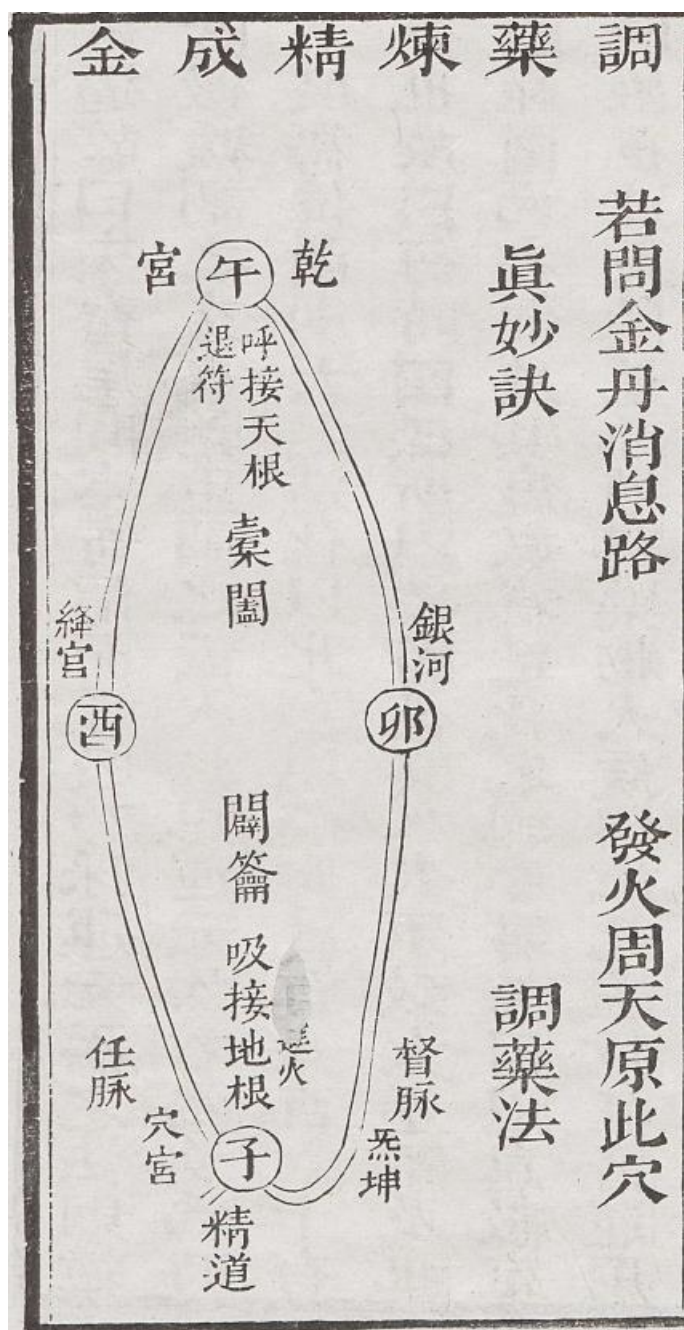 調藥煉精成金
若問金丹消息路
發火周天原此穴
眞妙訣
調藥法
乾
午
宮
呼接天根
退符
橐闔
銀河
卯
絳宮
酉
闢籥
吸接地根
進火
督脉
任脉
炁坤
穴宮
子
精道